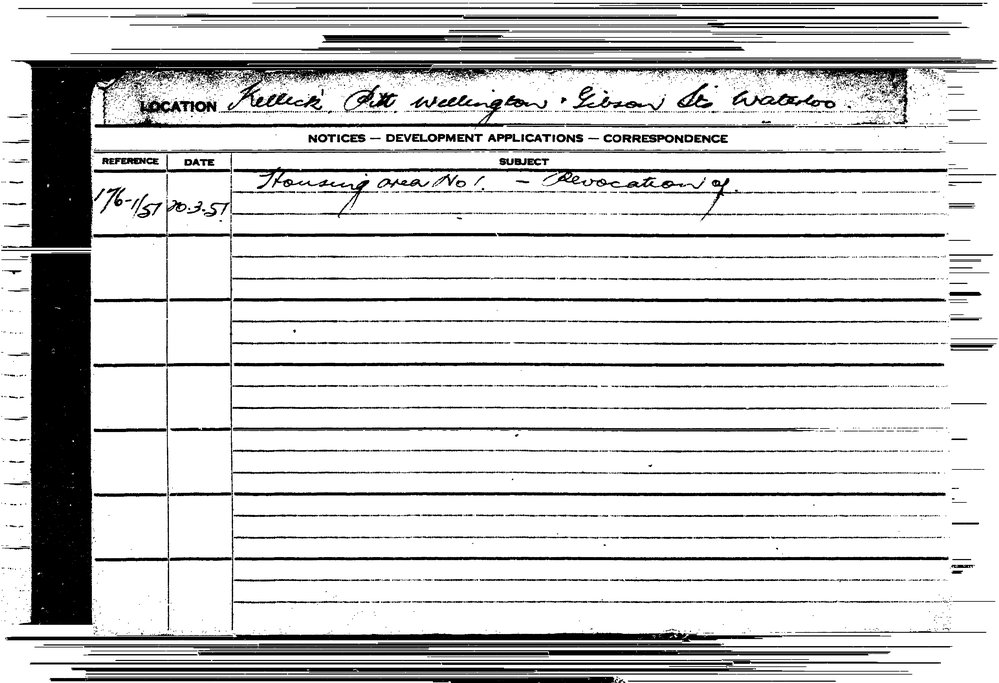 LOCATION Kellick, Pitt Wellington & Gibson Sts Waterloo.
NOTICES — DEVELOPMENT APPLICATIONS — CORRESPONDENCE
REFERENCE DATE SUBJECT
Housing area No 1. — Revocation of.
176-1/51 20.3.51